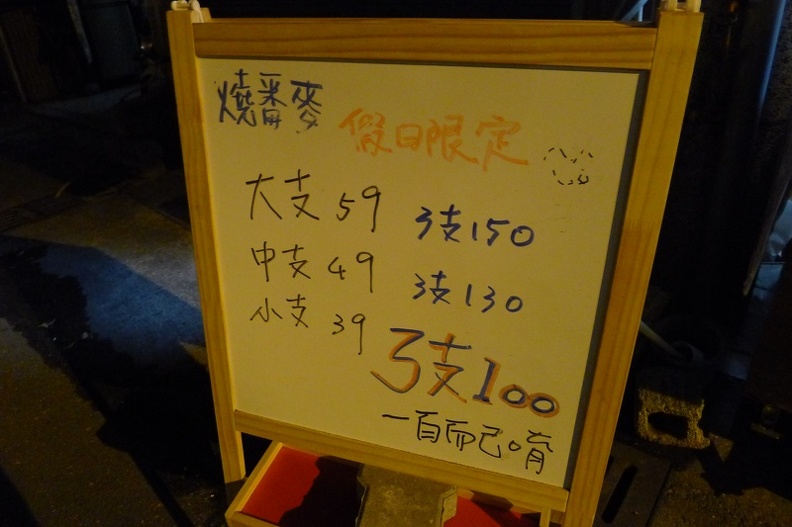 燒番麥
假日限定
大支 59 3支150
中支 49 3支130
小支 39
3支100
一百而已唷